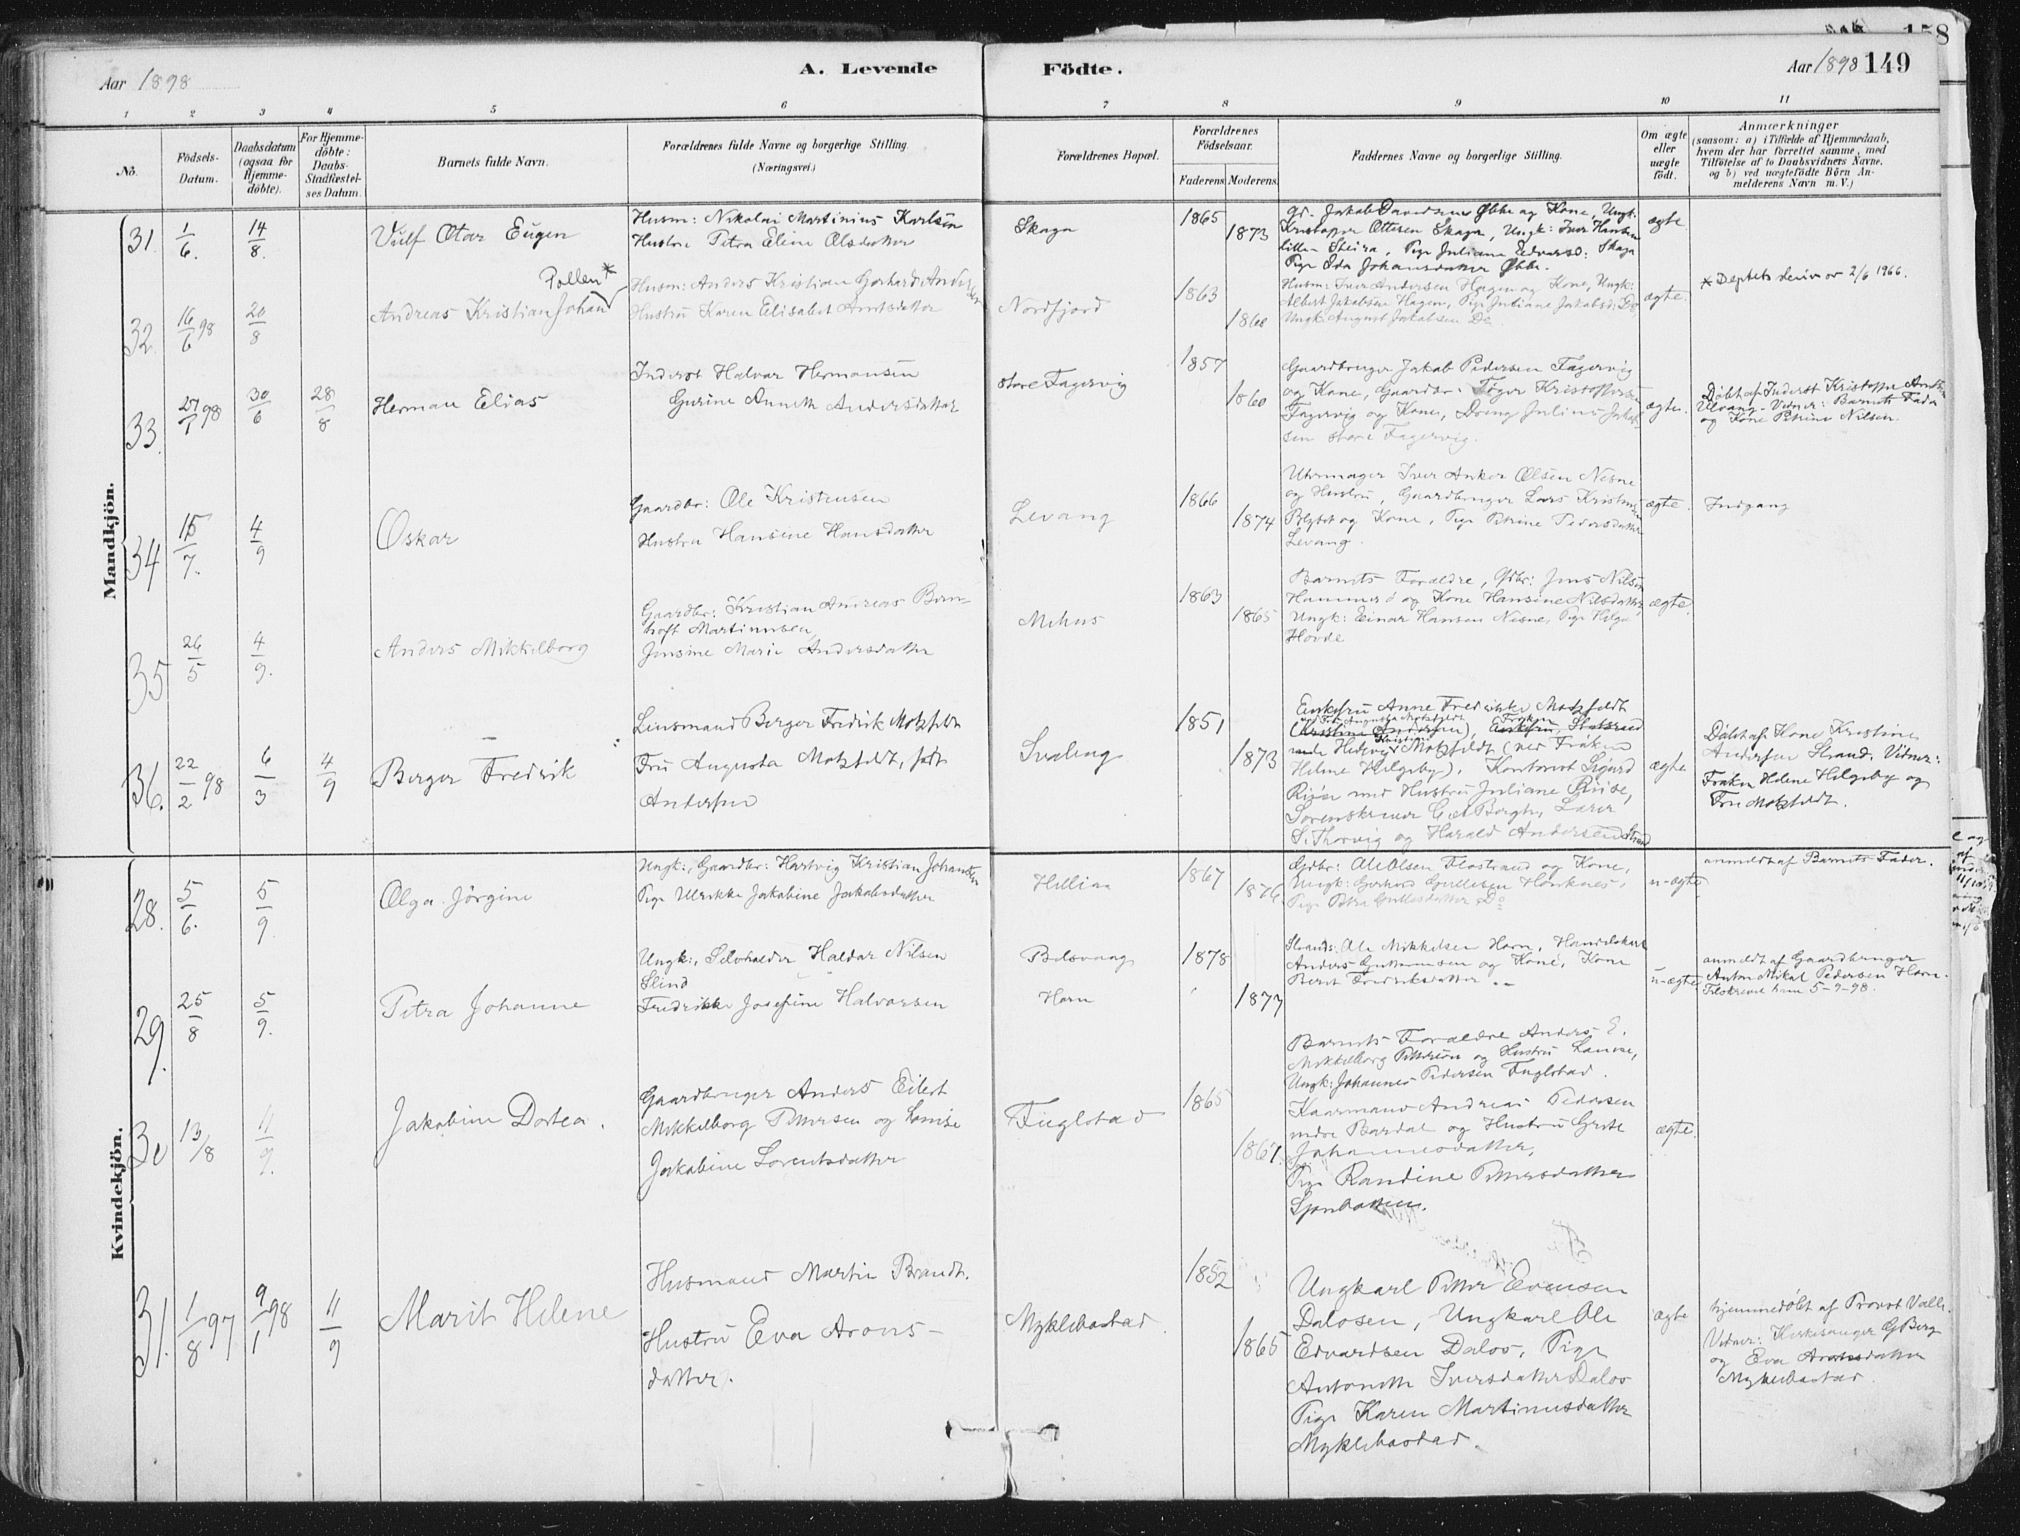 Aar 1898
A. Levende
Födte.
Aar 1898 149
158
1 2 3 4 5 6 7 8 9 10 11
No.
Födsels-
Datum.
Daabsdatum
(ogsaa for
Hjemme-
döbte).
For Hjemme-
döbte:
Daabs-
Stadfæstel-
ses Datum.
Barnets fulde Navn.
Forældrenes fulde Navne og borgerlige Stilling
(Næringsvei.)
Forældrenes Bopæl.
Forældrenes
Födselsaar.
Faderens Moderens
Faddernes Navne og borgerlige Stilling.
Om ægte
eller
uægte
födt.
Anmærkninger
(saasom: a) i Tilfælde af Hjemmedaab,
hvem der har forrettet samme, med
Tilföielse af to Daabsvidners Navne.
og b) ved uægtefödte Börn An-
melderens Navn m. V.)
Mandkjön.
31. 1/6. 14/8.
Vulf Otar Eugen
Husm: Nikolai Martinius Karlsen
Hustru Petra Eline Olsdatter
Skaga
1865
1873
Gr. Jakob Davidsen Øbbe og Kone, Ungk:
Kristoffer Ottesen Skaga, Ungk: Iver Hansen
Lille- Steira, Pige Juliane Edvards: Skaga
Pige Ida Johansdatter Øbbe.
ægte
32. 16/6 98 20/8
Pollen*
Andreas Kristian Johan
Husm: Anders Kristian Gerhard Andersen
Hustru Karen Elisabet Arntsdatter
Nordfjord
1863
1860
Husm: Iver Andersen Hagen og Kone, Ungk:
Albert Jakobsen Hagen, Pige Juliane Jakobsd: Do
Ungk: August Jakobsen Do.
ægte.
* Deptets skriv av 2/6 1966.
33. 27/1 98 30/6 28/8
Herman Elias
Inderst Halvar Hermansen
Gurine Anneth Andersdatter
store Fagervig
1857
1860
Gaardbruger Jakob Pedersen Fagervig
og Kone, Gaardbr: Töger Kristoffersen
Fagervig og Kone, Dreng Julius Jakob-
sen store Fagervig.
ægte.
Döbt af Inderst Kristoffer Arntsen
Ulvang. Vidner: Barnets Fader
og Kone Petrine Nilsen.
34 15/7. 4/9
Oskar
Gaardbr: Ole Kristensen
Hustru Hansine Hansdatter
Levang
1866
1874
Uhrmager Iver Anker Olsen Nesne
og Hustru, Gaardbruger Lars Kristensen
og Kone, Pige Petrine Pedersdatter
Levang.
ægte.
Indgang
35 26/5 4/9.
Anders Mikkelborg
Gaardbr: Kristian Andreas Bern-
hoft Martinusen
Jensine Marie Andersdatter
Mehus
1863
1865
Barnets Forældre, Gdbr: Jens Nilsen
Hammerö og Kone Hansine Nilsdatter
Ungk: Einar Hansen Nesne, Pige Helga
Hovde
ægte.
36. 22/2 98 6/3 4/9
Berger Fredrik
Lensmand Berger Fredrik Motzfeldt
Fru Augusta Motzfeldt, født
Andersen
Svaleng
1851
1873
Enkefru Anne Fredrikke Motzfeldt
(Kristine Andersen), Enkefru Statsraad
Fröken
Hedevig Motzfeldt (ved Fröken
Helene Helgeby), Kontorist Sigurd
Riise med Hustru Juliane Riise,
Sorenskriver C. de Bergh, Lærer
S. Thorvig og Harald Andersen Strand
ægte
Döbt af Kone Kristine
Andersen Strand. Vidner:
Fröken Helene Helgeby og
Fru Motzfeldt.
Kvindekjön.
28. 5/6. 5/9.
Olga Jörgine
Ungk:, Gaardbr: Hartvig Kristian Johansen
Pige Ulrikke Jakobine Jakobsdatter
Hellian
1867
1876
Gdbr: Ole Olsen Flostrand og Kone,
Ungk: Gerhard Gullesen Honknes,
Pige Petra Gullesdatter Do
u-ægte
anmeldt af Barnets Fader.
29. 25/8 5/9.
Petra Johanne
Ungk:, Selvholder Haldar Nilsen
Slind
Fredrikke Josefine Halvorsen
Horn
1878
1877
Strands: Ole Mikkelsen Horn, Handelskar
og Kone, Kone
Berit Fredriksdatter
u-ægte
anmeldt af Gaardbruger
Anton Mikal Pedersen Horn.
Tilskrevet ham 5-9-98.
30 13/8 11/9.
Jakobine Dortea.
Gaardbruger Anders Eilert
Mikkelborg Pettersen og Lovise
Jakobine Lorentsdatter
Fuglstad
1865
1867.
Barnets Forældre Anders E.
Mikkelborg Pettersen og Hustru Lovise,
Ungk: Johannes Pedersen Fuglstad.
Kaarmand Andreas Pedersen
indre Bardal og Hustru Grete
Johannesdatter,
Pige Randine Pettersdatter
Sjonbotten.
ægte.
31. 1/8 97 9/1 98 11/9
Marit Helene
Husmand Martin Brandt.
Hustru Eva Arons-
datter.
Myklebostad.
1852
1865
Ungkarl Petter Evensen
Dalosen, Ungkarl Ole
Edvardsen Dalos, Pige
Antoneth Iversdatter Dalos
Pige Karen Martinusdatter
Myklebostad.
ægte
hjemmedöbt af Provst Valle.
Vidner: Kirkesanger G. Berg
og Eva Aronsdatter
Myklebostad.